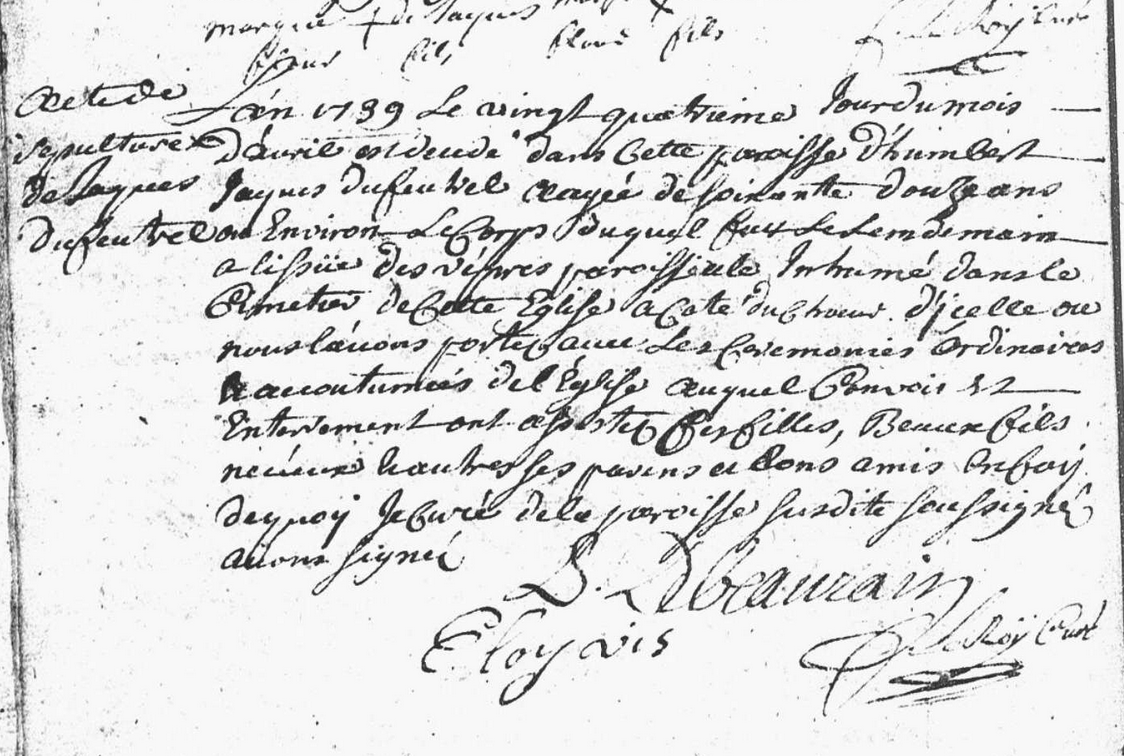 marque + de Jaques
fils fils
Le Roy Curé
Acte de
sepulture
de Jaques
Dufeutrel
L'an 1739 Le vingt quatrieme Jour du mois
D'avril est decedé dans Cette paroisse D'humbert
Jaques Dufeutrel aagée de soixante douze ans
ou Environ Le Corps Duquel fut Le Lendemain
a lissüe des vêpres paroissiale Inhumé dans le
Cimetier de Cette Eglise a Coté du Chœur d'jcelle ou
nous lavons portez avec Les Ceremonies Ordinaires
& accoutumées de l'Eglise auquel Convois et
Enterement ont assistez ses filles, Beaux fils
neveux & autres ses parens et bons amis En foÿ
dequoÿ Je Curé de la paroisse susdite soussigné
avons signé
D. Dbeaurain
Eloy vis
Le Roÿ Curé